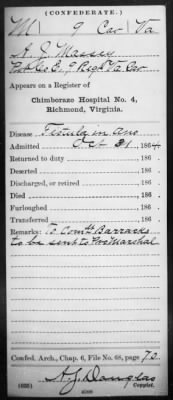 (CONFEDERATE.)
M 9 Cav Va
A. J. Massey
Pvt Co E. 9 Regt. Va. Cav
Appears on a Register of
Chimborazo Hospital No. 4,
Richmond, Virginia.
Disease Fistula in Ano
Admitted Oct 31 1864
Returned to duty 186 .
Deserted 186 .
Discharged, or retired 186 .
Died 186 .
Furloughed 186 .
Transferred 186 .
Remarks: To Comdt Barracks
to be sent to Pro Marshal
Confed. Arch., Chap. 6, File No. 68, page 72
A. J. Douglas
(635) Copyist.